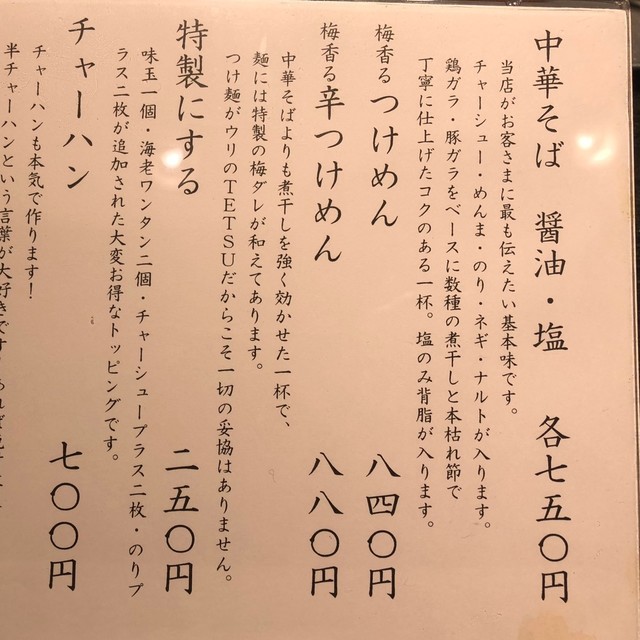 中華そば 醤油・塩 各七五〇円
当店がお客さまに最も伝えたい基本味です。
チャーシュー・めんま・のり・ネギ・ナルトが入ります。
鶏ガラ・豚ガラをベースに数種の煮干しと本枯れ節で
丁寧に仕上げたコクのある一杯。塩のみ背脂が入ります。
梅香る つけめん 八四〇円
梅香る 辛つけめん 八八〇円
中華そばよりも煮干しを強く効かせた一杯で、
麺には特製の梅ダレが和えてあります。
つけ麺がウリのTETSUだからこそ一切の妥協はありません。
特製にする 二五〇円
味玉一個・海老ワンタン二個・チャーシュープラス二枚・のりプ
ラス二枚が追加された大変お得なトッピングです。
チャーハン 七〇〇円
チャーハンも本気で作ります!
半チャーハンという言葉が大好きです